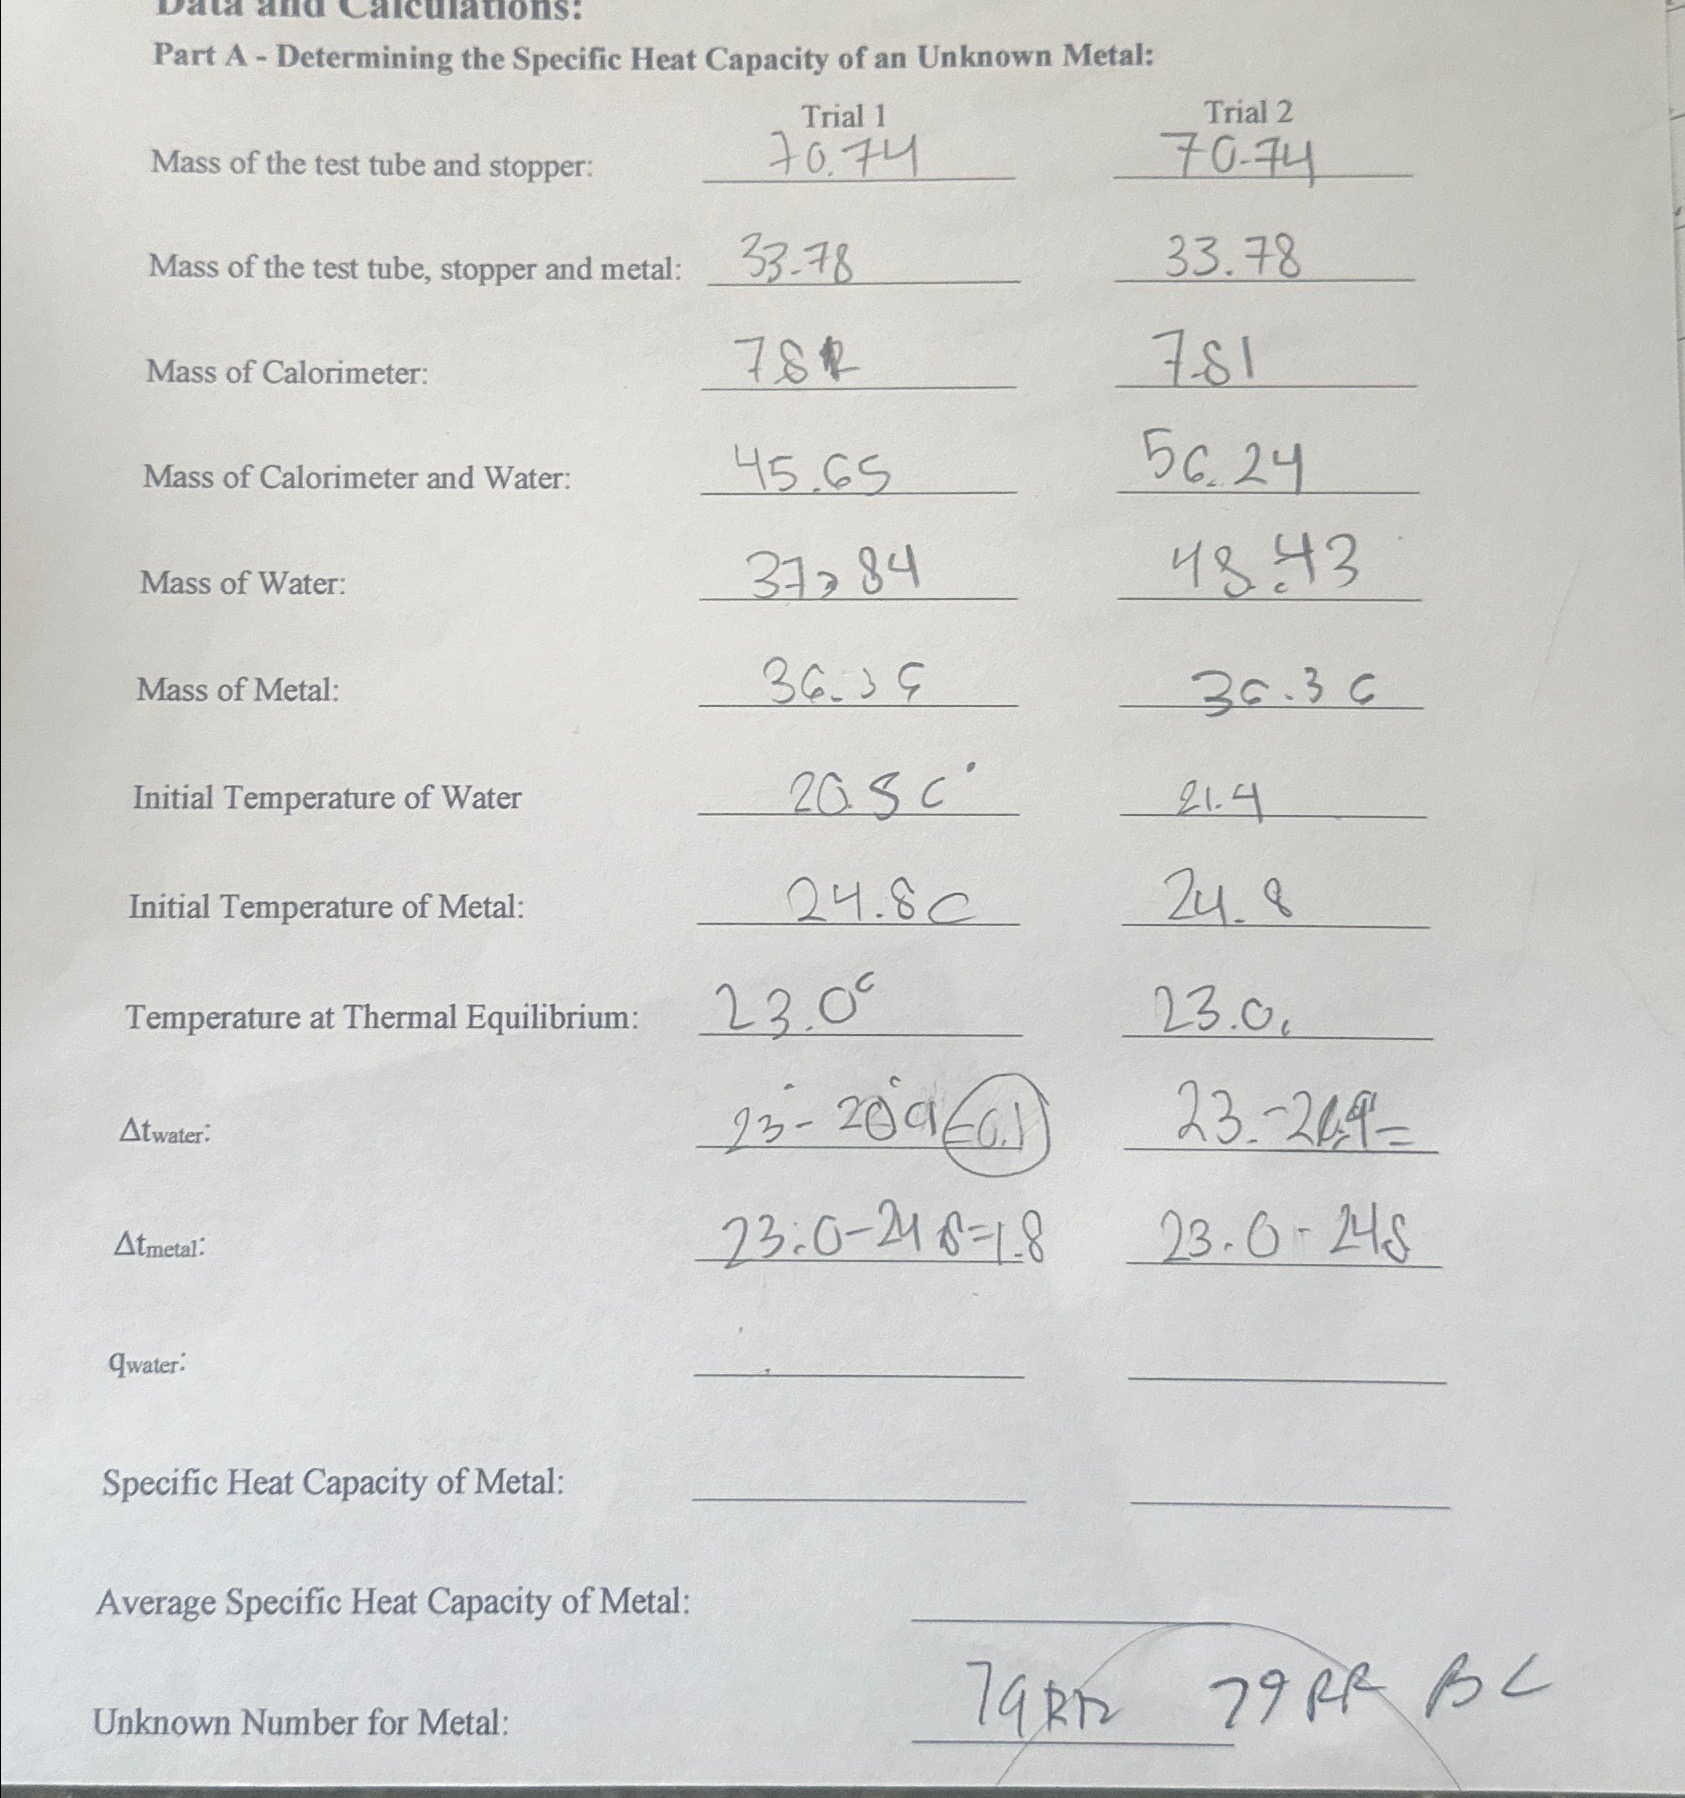 Data and Calculations:
Part A - Determining the Specific Heat Capacity of an Unknown Metal:
Trial 1 Trial 2
Mass of the test tube and stopper: 70.74 70.74
Mass of the test tube, stopper and metal: 33.78 33.78
Mass of Calorimeter: 7.81
Mass of Calorimeter and Water: 45.65 56.24
Mass of Water: 37.84 48.43
Mass of Metal: 36.36 36.36
Initial Temperature of Water 20.8 C° 21.4
Initial Temperature of Metal: 24.8 C 24.8
Temperature at Thermal Equilibrium: 23.0 c 23.0
Δtwater: 23 - =0.1 23. -
Δtmetal: 23.0-24.8=1.8 23.0 - 24.8
qwater:
Specific Heat Capacity of Metal:
Average Specific Heat Capacity of Metal:
Unknown Number for Metal: 79RR 79RR BC